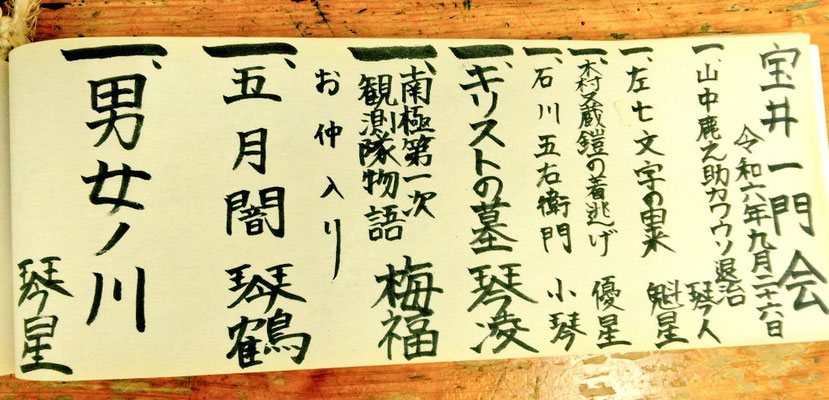 宝井一門会
令和六年九月二十六日
一、山中鹿之助カワウソ退治 琴人
一、左七文字の由来 魁星
一、木村又蔵鎧の着逃げ 優星
一、石川五右衛門 小琴
一、キリストの墓 琴凌
一、南極第一次
観測隊物語 梅福
お仲入り
一、五月闇 琴鶴
一、男女ノ川
琴星